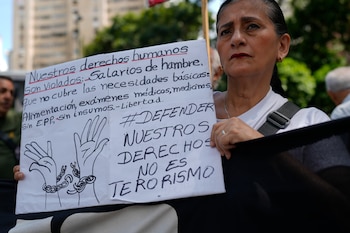 Nuestros derechos humanos
son violados: Salarios de hambre
que no cubre las necesidades básicas:
Alimentación, exámenes médicos, medicinas
Sin EPP, sin insumos. - Libertad
#DEFENDER
NUESTROS
DERECHOS
NO ES
TERORISMO